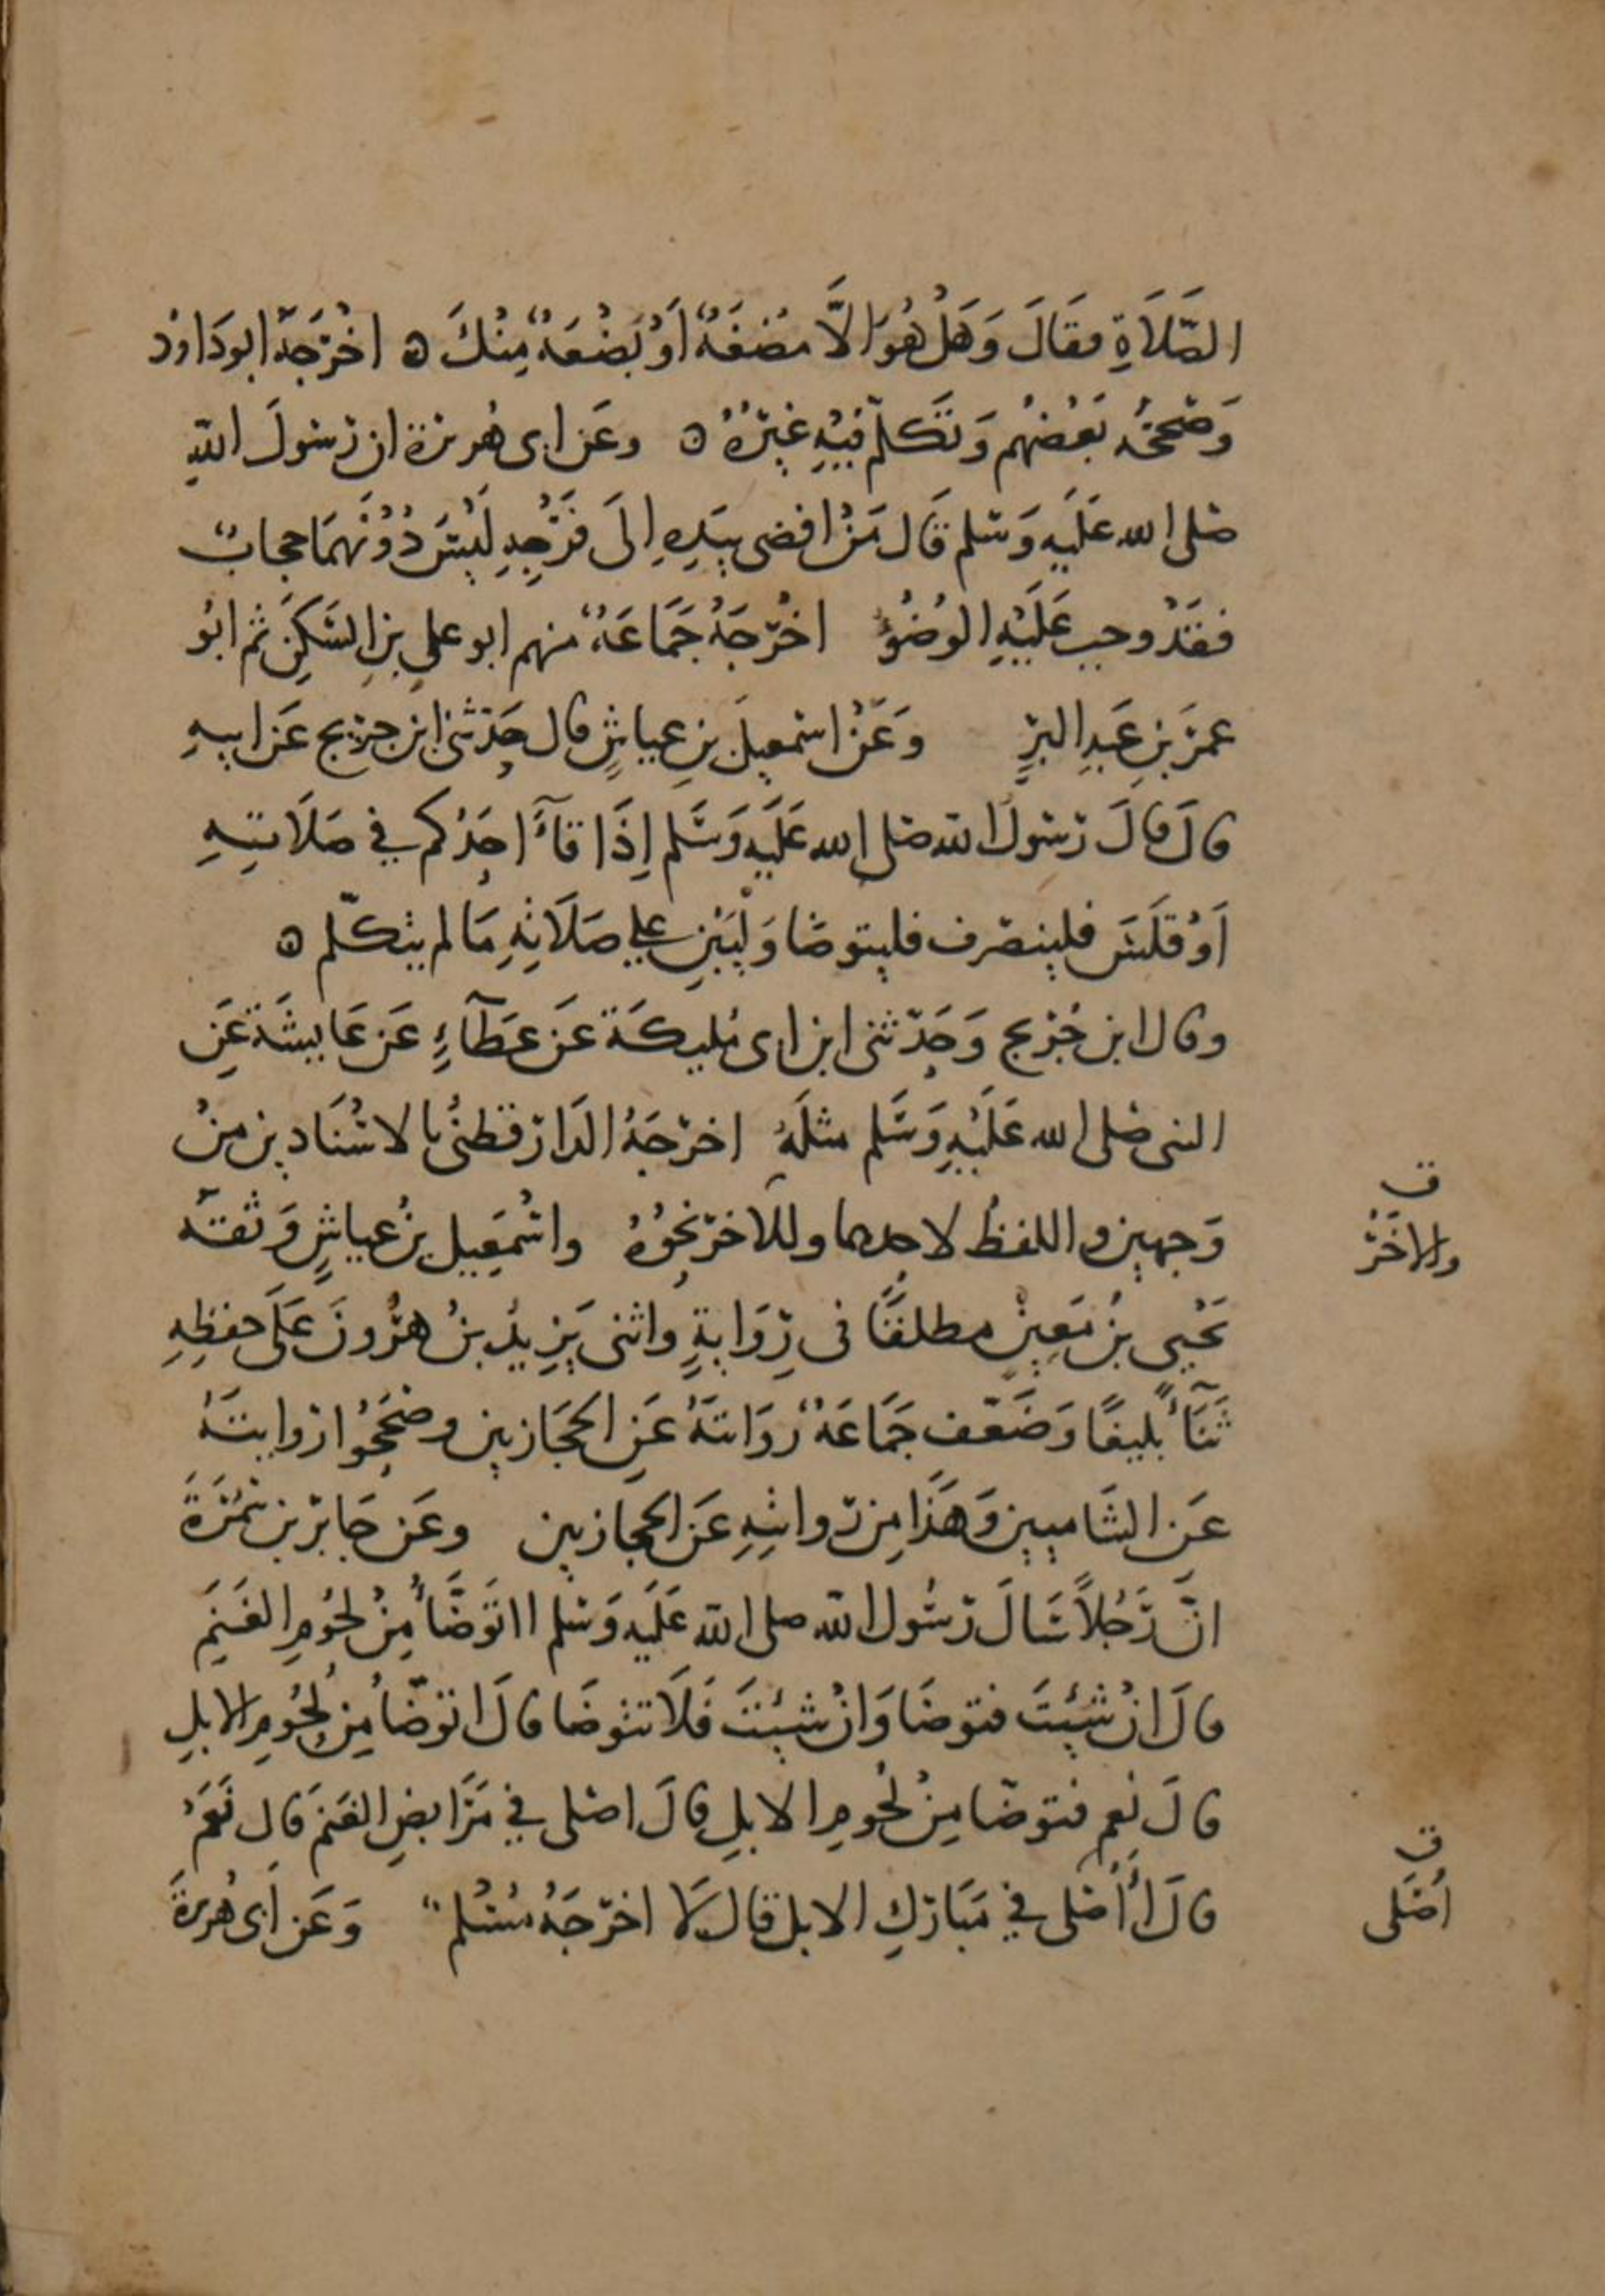 الصَّلَاةِ فقَالَ وَهَلْ هُوَ الَّا مُضغَةٌ اَوْ بَضْعَةٌ مِنْكَ ه اخْرَجَهُ ابو دَاوُد
وَصَححَهُ بَعْضُهُم وَتَكلّم فِيْهِ غيْرُهُ ه وعَن ابى هُريرة ان رَسُولَ اللهِ
صلى الله عَلَيهِ وَسَلم قَال مَنْ افضى بيَدِهِ اِلَى فَرْجِهِ لَيْسَ دُوْنَهمَا حجابٌ
فقَدْ وجب عَلَيْهِ الوُضُوْءُ اخْرَجَهُ جَمَاعَةٌ منهم ابو علي بنِ السَكَنِ ثم ابُو
عمَرَ بنِ عَبدِ البرِّ وَعَنْ اسمعيلَ بنِ عياشٍ قال حَدّثني ابن جريج عَن ابيهِ
قالَ قالَ رَسُولُ الله صلى الله عَلَيهِ وَسَلم اِذَا قَآءَ احَدُكم في صَلَاتِهِ
اَوْ قَلَسَ فلينصَرف فليتوضا وَلْيَبْنِ علي صَلَاتِهِ مَا لم يتكلّم ه
وقال ابن جُرَيج وَحَدّثنى ابن ابى مُليكَة عَن عَطَآءٍ عَن عَايشَة عَنِ
النبى صلى الله عَلَيْهِ وَسَلم مثلَهُ اخرَجَهُ الدَارَقطنيُّ بالاسْنَادين منْ
وَجهين واللفظُ لاحدهما وللآخر نحْوُهُ واسْمَعِيل بنُ عياشٍ وَثقَهُ
ق
والاخَرُ
يَحْيى بنُ مَعِينٍ مطلقًا فى رِوَايةٍ واثنى يَزِيدُ بنُ هَرُونَ عَلَى حفظِهِ
ثَنَآءً بَليغًا وَضَعّف جَمَاعَةٌ رِوَايتَهُ عَنِ الحجَازيين وصَححُوا روايتَهُ
عَن الشَاميين وَهَذَا مِن روايتِهِ عَن الحجازيين وعَن جَابر بن سَمُرَةَ
انَّ رَجُلاً سَالَ رَسُولَ اللهِ صلى الله عَلَيهِ وَسَلم ااتَوَضَّأُ مِنْ لحُومِ الغَنَمِ
قالَ انْ شِيْتَ فتوضَا وَانْ شِيْتَ فَلَا تتوضَا قالَ اتوَضّاُ مِن لحُومِ الابلِ
قالَ نعم فتوضّا مِنْ لحُومِ الابلِ قالَ اصَلى في مَرَابضِ الغَنَم قَال نَعَمْ
قالَ أَأُصَلى في مَبَارَكِ الابل قال لَا اخرَجَهُ مُسْلم وَعَن أبى هُريرَةَ
ق
أصَلى